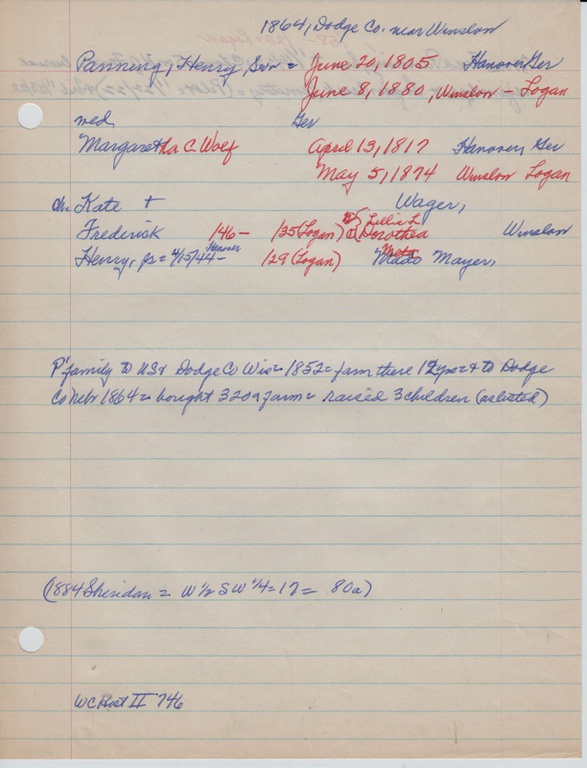 1864, Dodge Co. near Winslow
Panning, Henry, Snr = June 20, 1805 Hanover Ger
June 8, 1880, Winslow - Logan
wed, Ger
Margaretha C. Wolf April 13, 1817 Hanover, Ger
May 5, 1874 Winslow Logan
ch. Kate + Wager,
2) Lillie L
Frederick 1846 - 1935 (Logan) 1) Dorothea Winslow
Hanover Meta
Henry, Jr = 4/15/44 - 1929 (Logan) Mayer,
P' family to USA Dodge Co Wis = 1852 = farm there 12 yrs = + to Dodge
Co Nebr 1864 = bought 320a farm = raised 3 children (as listed)
(1884 Sheridan = W 1/2 SW 1/4 = 17 = 80a)
WC Hist II 746